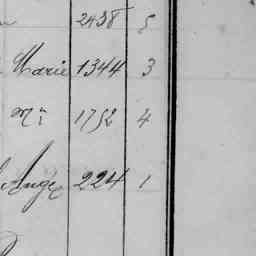 2438 5
Marie 1344 3
Mn 1752 4
Ange 224 1